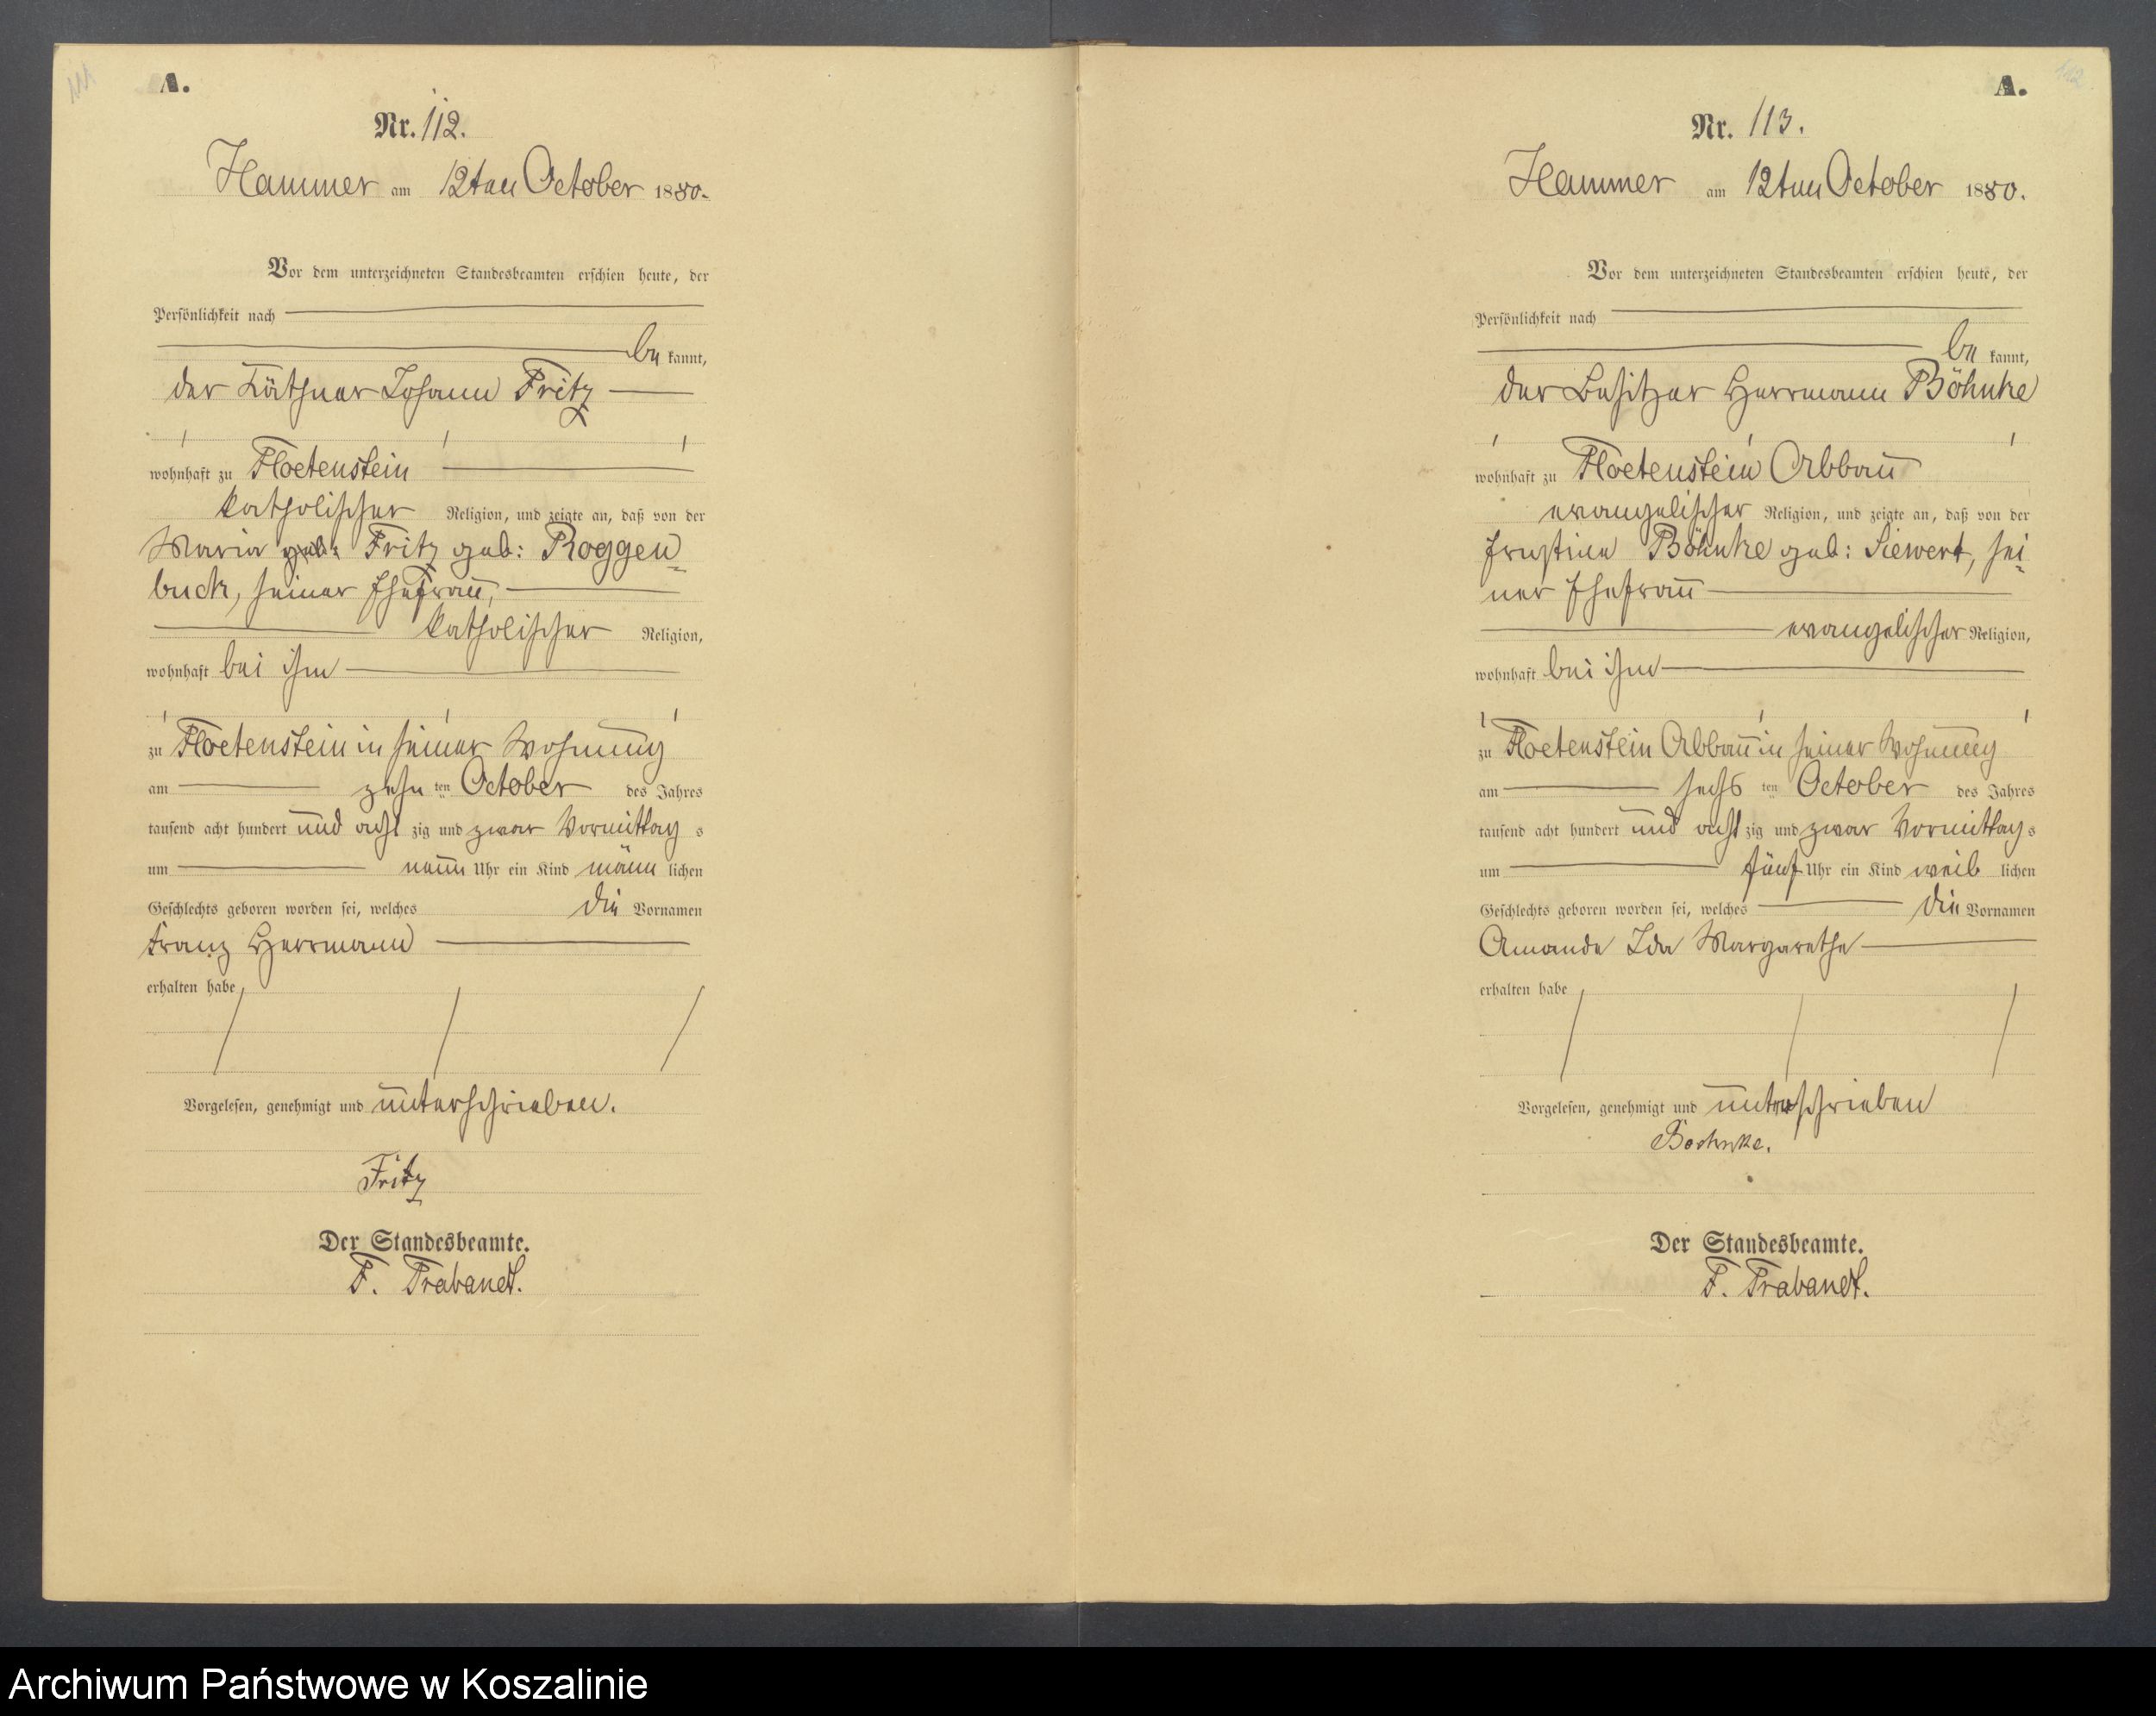 111
A.
Nr. 112.
Hammer am 12ten October 1880.
Vor dem unterzeichneten Standesbeamten erschien heute, der
Persönlichkeit nach
be kannt,
der Käthner Johann Fritz
wohnhaft zu Floetenstein
katholischer Religion, und zeigte an, daß von der
Maria geb: Fritz geb: Roggen=
buck, seiner Ehefrau,
katholischer Religion,
wohnhaft bei ihm
zu Floetenstein in seiner Wohnung
am zehn ten October des Jahres
tausend acht hundert und acht zig und zwar Vormittag s
um neun Uhr ein Kind männ lichen
Geschlechts geboren worden sei, welches die Vornamen
Franz Herrmann
erhalten habe
Vorgelesen, genehmigt und unterschrieben.
Fritz
Der Standesbeamte.
F. Trabandt.
112
A.
Nr. 113.
Hammer am 12ten October 1880.
Vor dem unterzeichneten Standesbeamten erschien heute, der
Persönlichkeit nach
be kannt,
der Besitzer Herrmann Böhnke
wohnhaft zu Floetenstein Abbau
evangelischer Religion, und zeigte an, daß von der
Böhnke geb: Siewert, sei=
ner Ehefrau
evangelischer Religion,
wohnhaft bei ihm
zu Floetenstein Abbau in seiner Wohnung
am sechs ten October des Jahres
tausend acht hundert und acht zig und zwar Vormittag s
um fünf Uhr ein Kind weib lichen
Geschlechts geboren worden sei, welches die Vornamen
Amande Ida Margarethe
erhalten habe
Vorgelesen, genehmigt und unterschrieben
Boehnke.
Der Standesbeamte.
F. Trabandt.
Archiwum Państwowe w Koszalinie